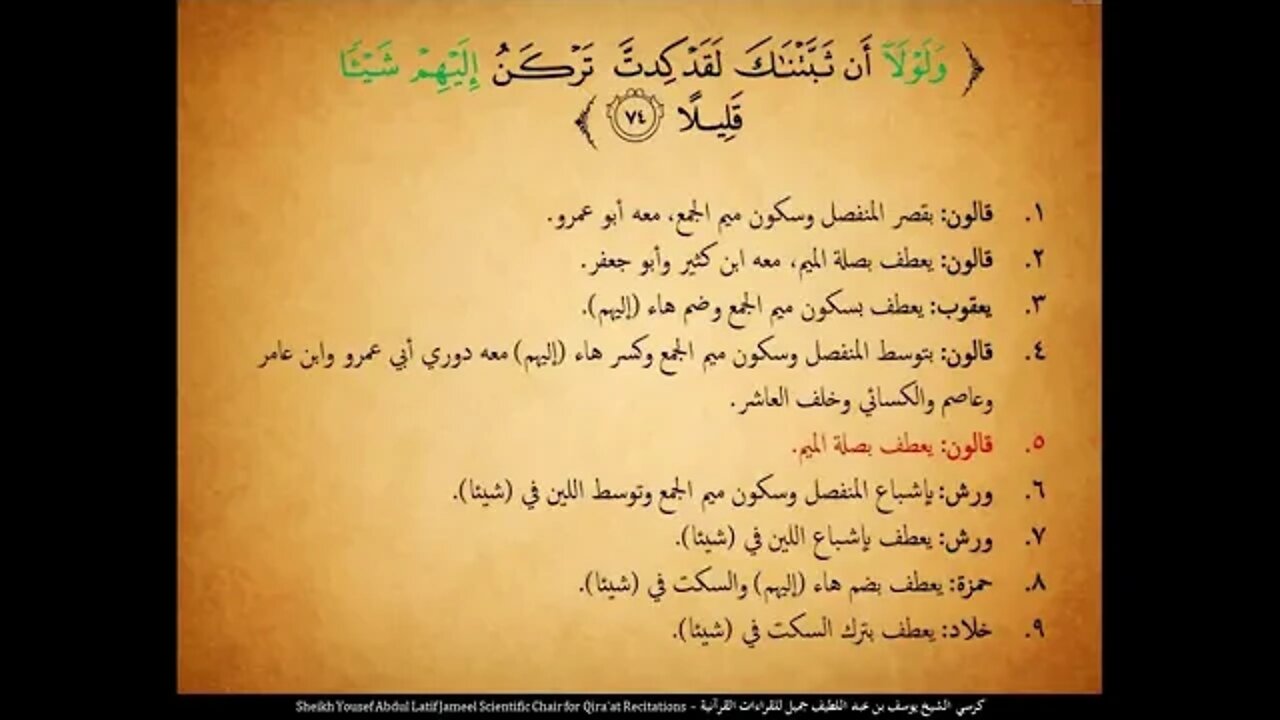 ﴿ وَلَوْلَآ أَن ثَبَّتْنَٰكَ لَقَدْ كِدتَّ تَرْكَنُ إِلَيْهِمْ شَيْـًٔا
قَلِيلًا ٧٤ ﴾
١. قالون: بقصر المنفصل وسكون ميم الجمع، معه أبو عمرو.
٢. قالون: يعطف بصلة الميم، معه ابن كثير وأبو جعفر.
٣. يعقوب: يعطف بسكون ميم الجمع وضم هاء (إليهم).
٤. قالون: بتوسط المنفصل وسكون ميم الجمع وكسر هاء (إليهم) معه دوري أبي عمرو وابن عامر
وعاصم والكسائي وخلف العاشر.
٥. قالون: يعطف بصلة الميم.
٦. ورش: بإشباع المنفصل وسكون ميم الجمع وتوسط اللين في (شيئا).
٧. ورش: يعطف بإشباع اللين في (شيئا).
٨. حمزة: يعطف بضم هاء (إليهم) والسكت في (شيئا).
٩. خلاد: يعطف بترك السكت في (شيئا).
Sheikh Yousef Abdul Latif Jameel Scientific Chair for Qira'at Recitations - كرسي الشيخ يوسف بن عبد اللطيف جميل للقراءات القرآنية